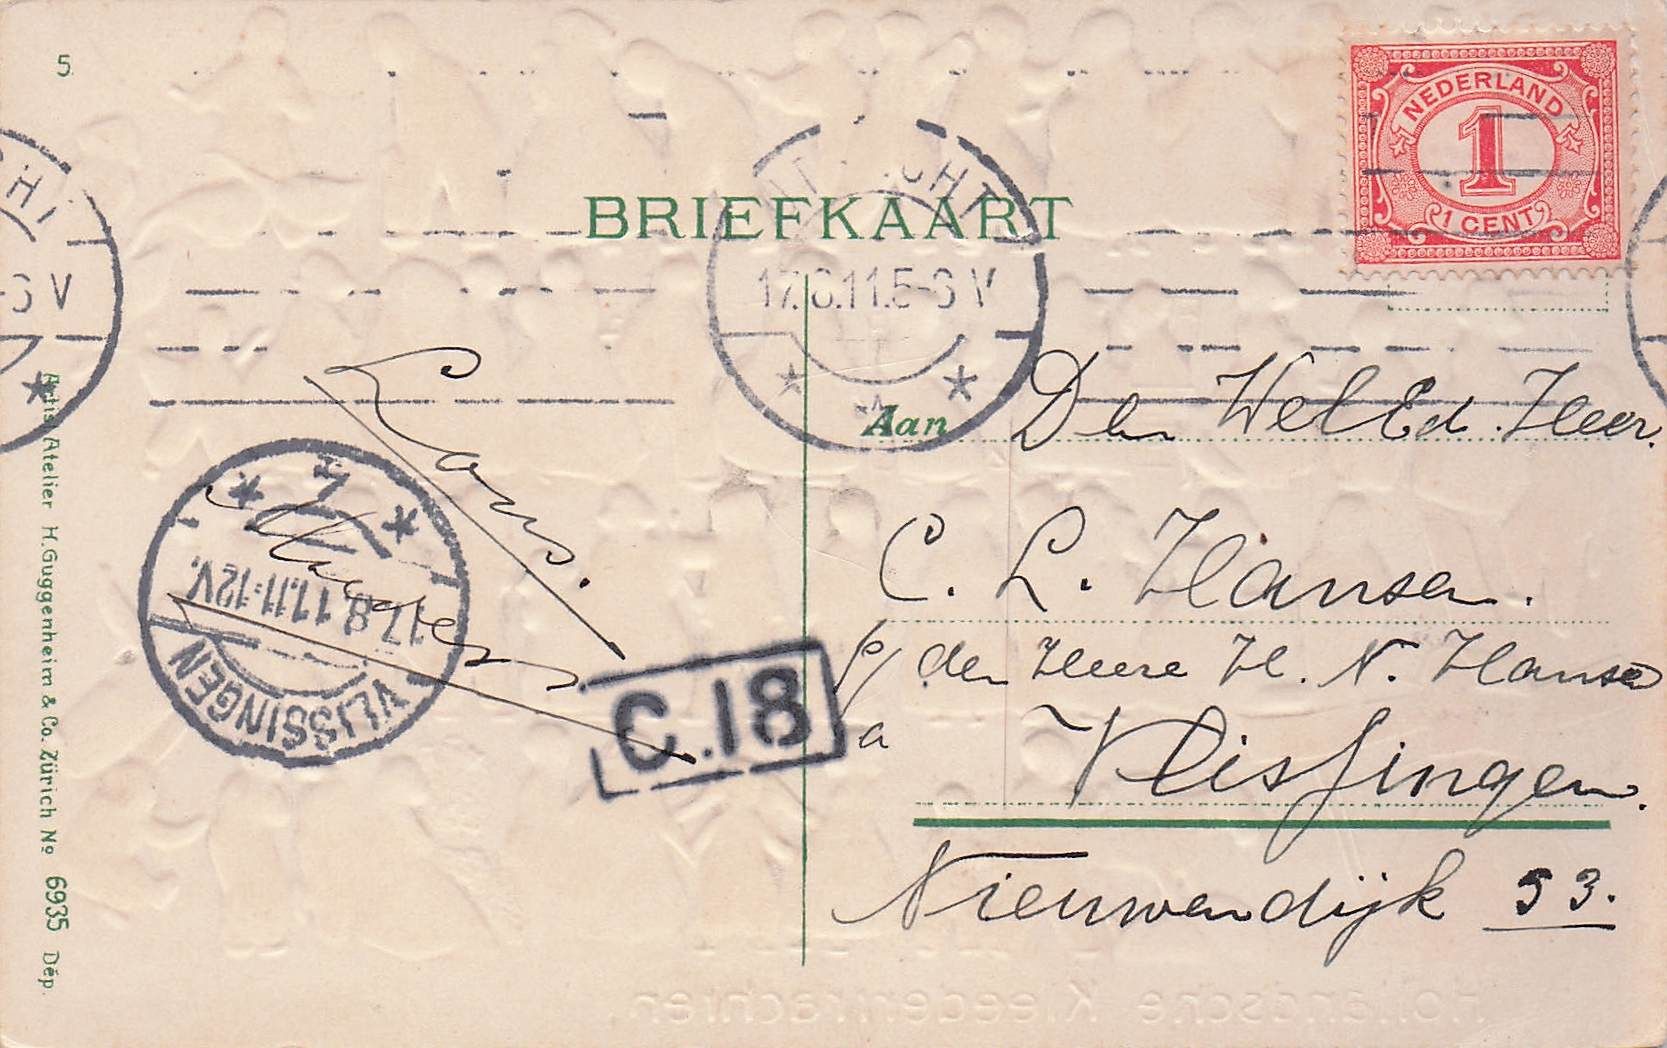 5.
NEDERLAND
1
1 CENT
BRIEFKAART
17.8.11.5-6 V
Aan
Den WelEd. Heer.
C. L. Hansen.
p/ den Heere H. N. Hansen
a
Vlissingen.
Nieuwendijk 53.
VLISSINGEN
17.8.11.11-12V.
C.18
Atelier H. Guggenheim & Co. Zürich No 6935 Dép.
Hollandsche Kleederdrachten.